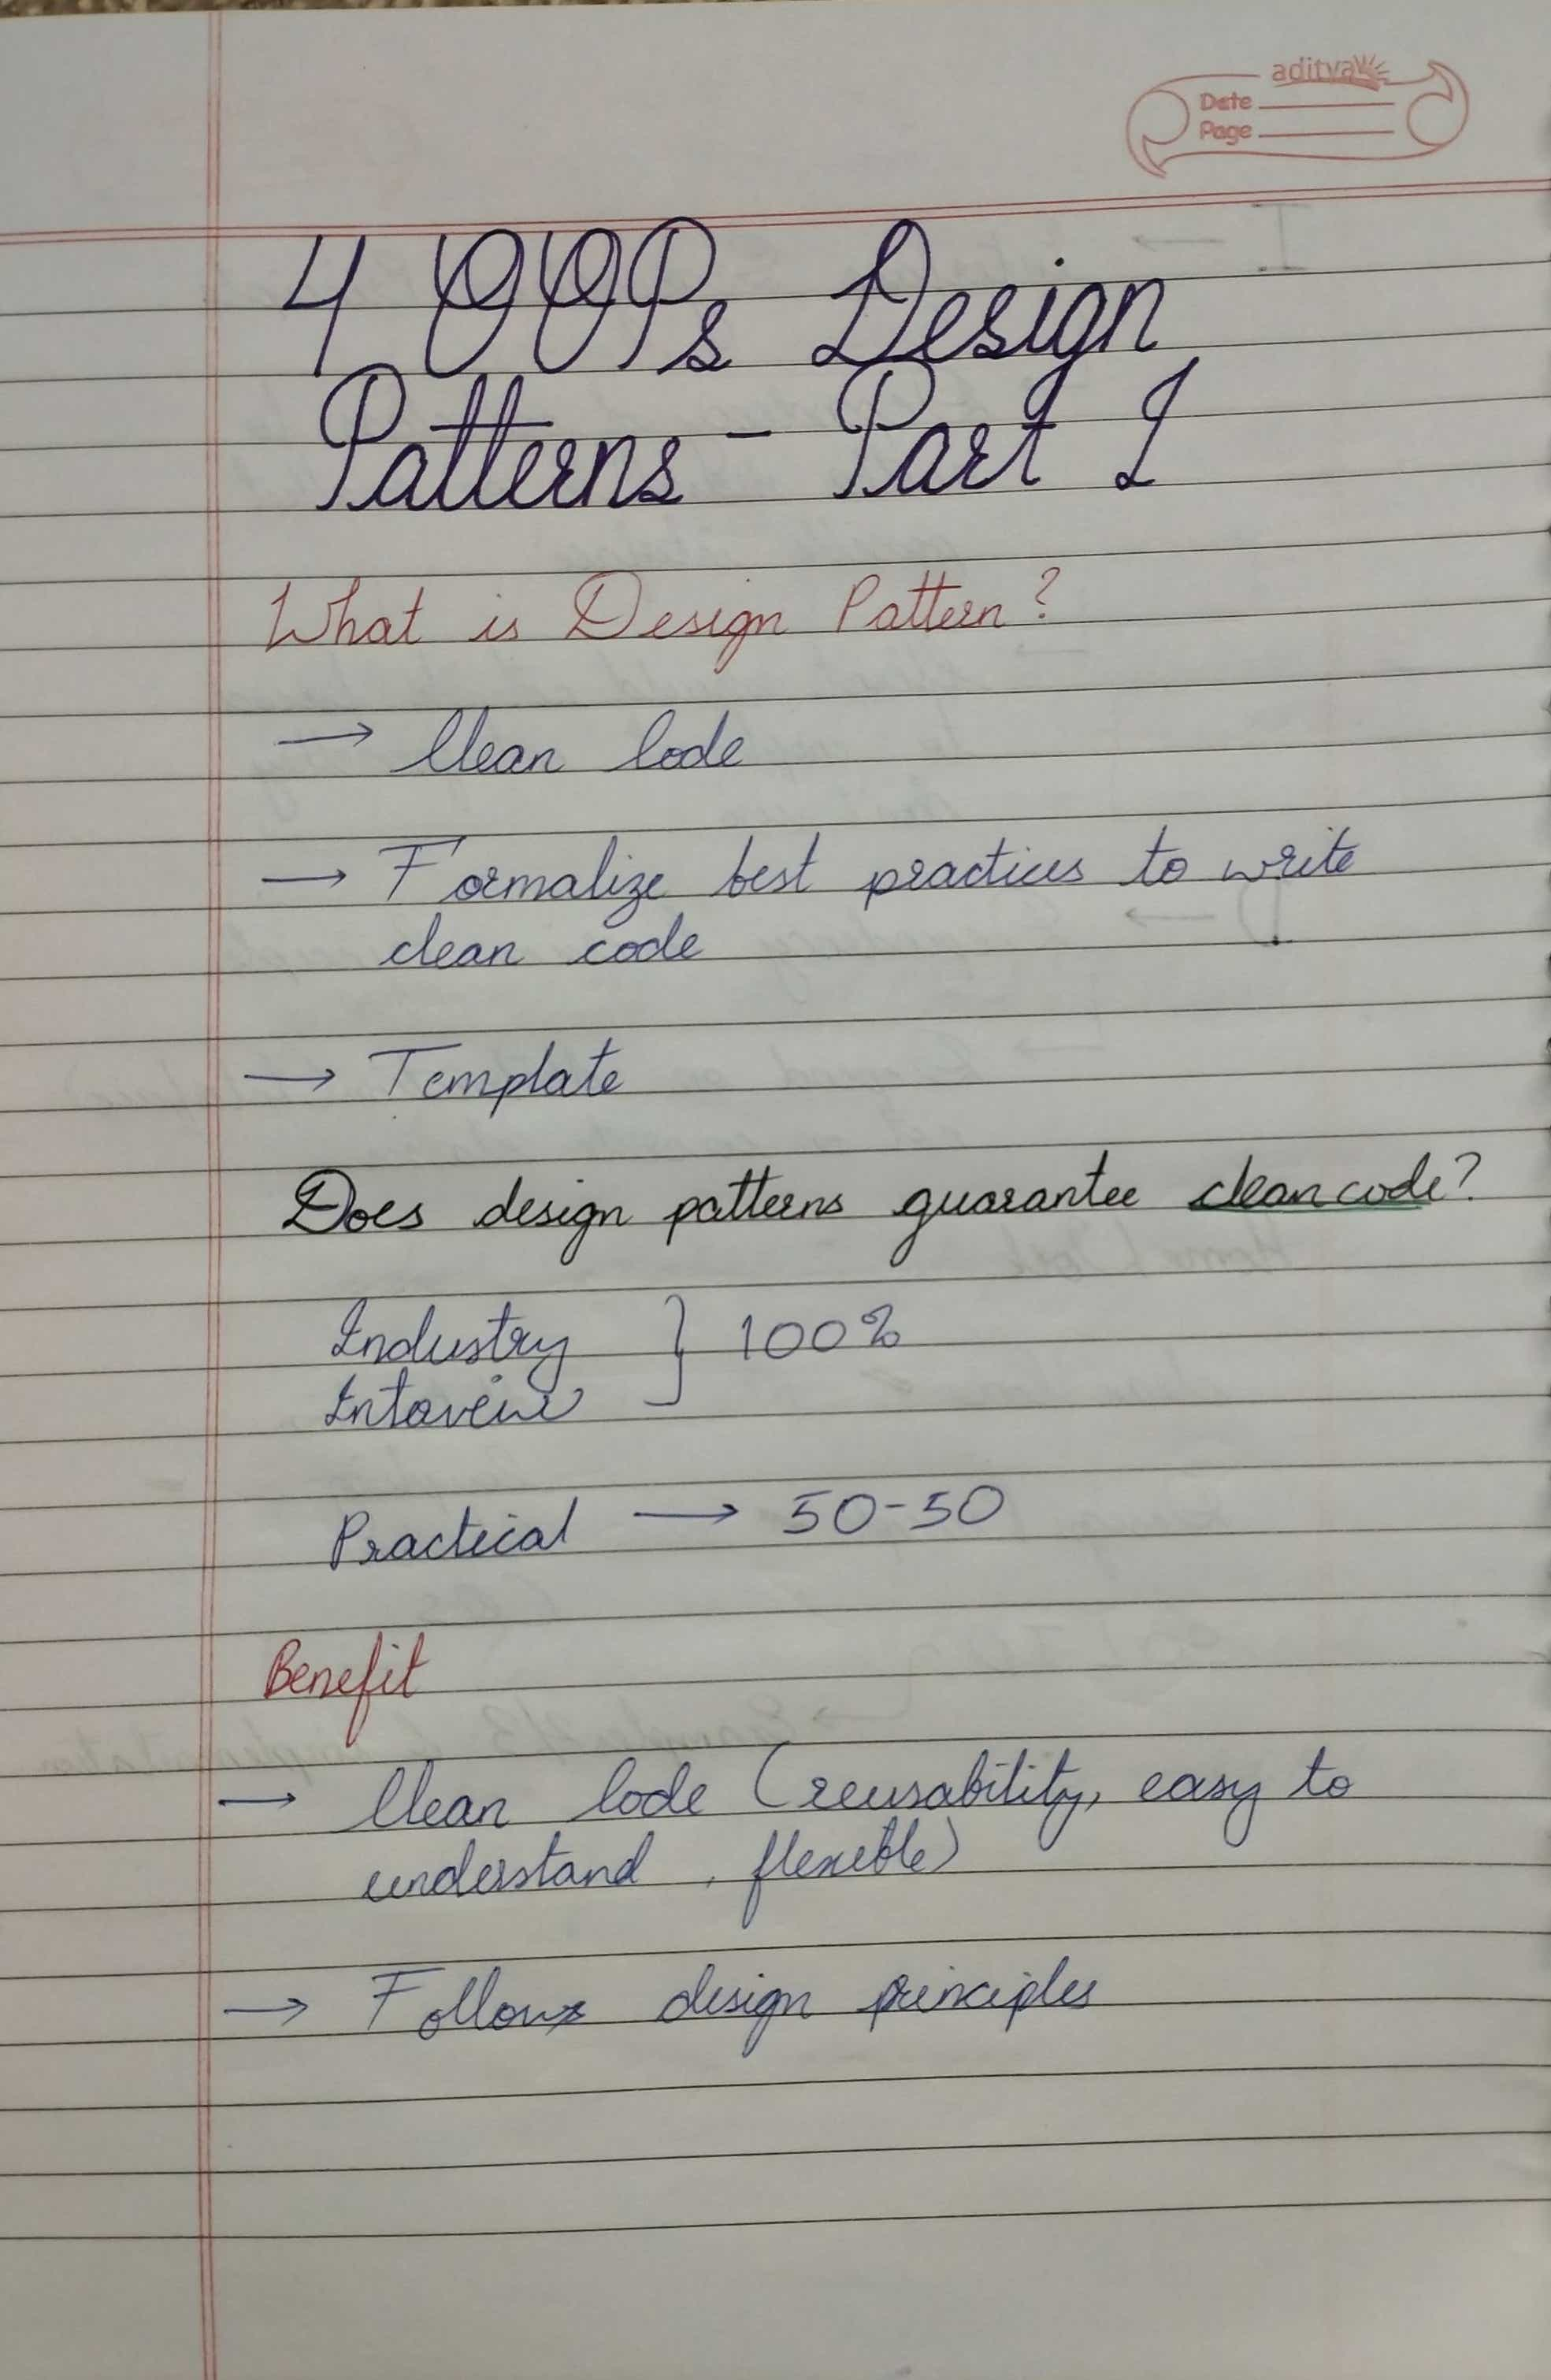 aditya
Date
Page
4 OOPs Design
Patterns - Part I
What is Design Pattern?
→ Clean Code
→ Formalize best practices to write
clean code
→ Template
Does design patterns guarantee clean code?
Industry } 100%
Interveiw
Practical → 50-50
Benefit
→ Clean Code (reusability, easy to
understand, flexible)
→ Follows design principles